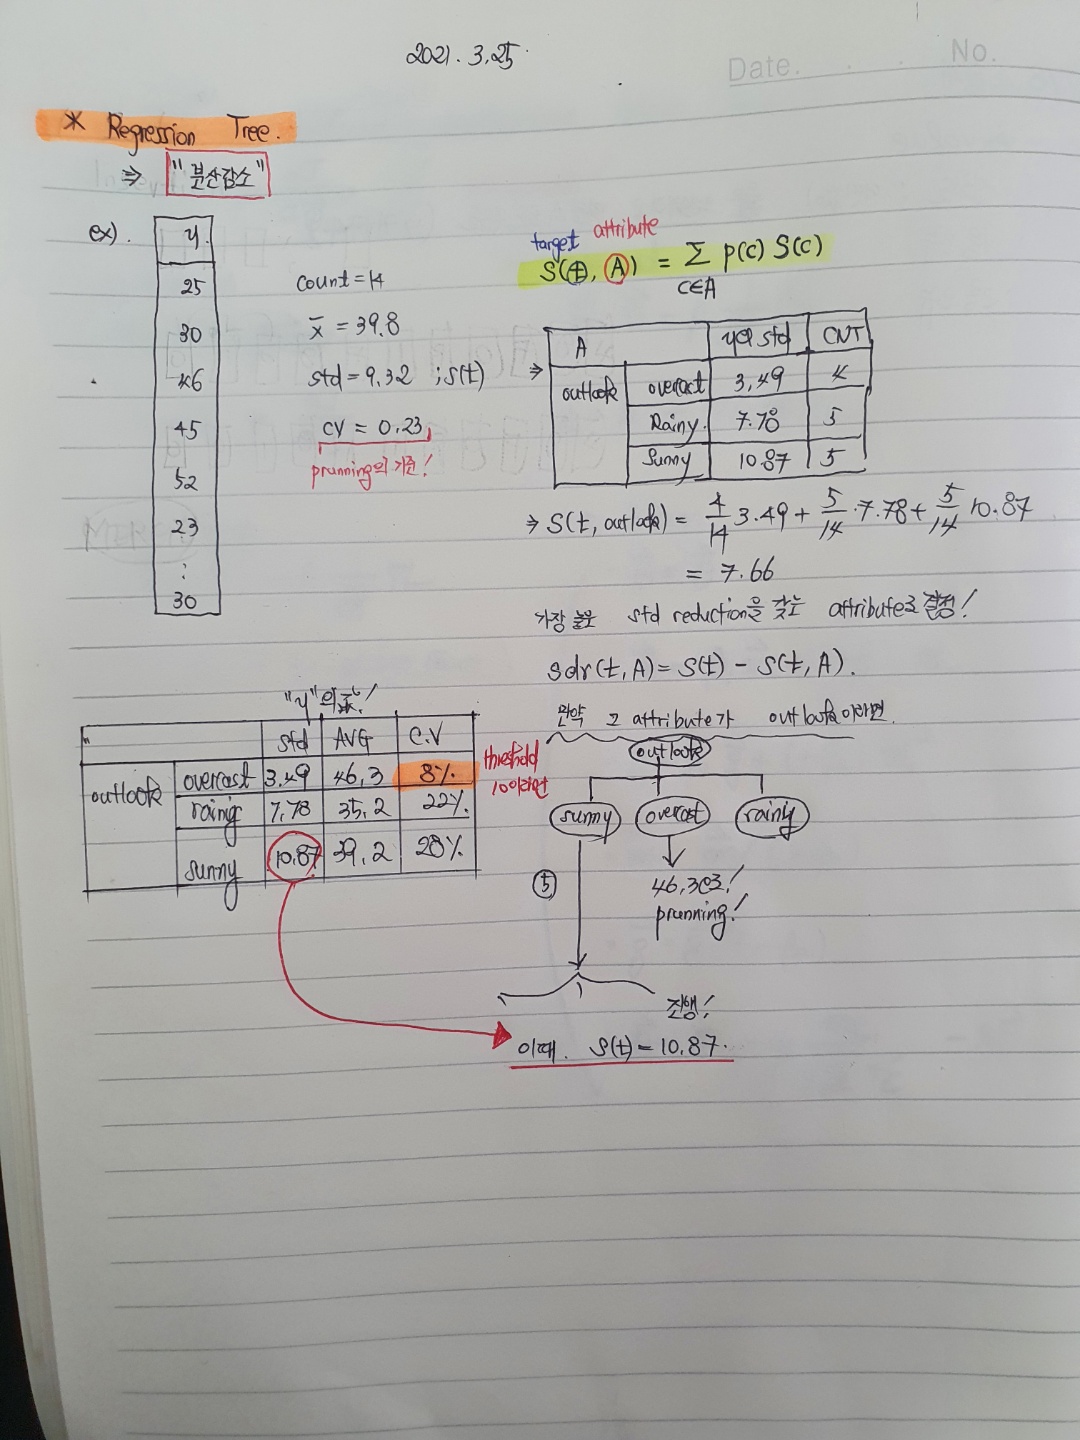 2021. 3. 25.
Date. . . No.
* Regression Tree.
⇒ "분산감소"
ex).
y.
25
30
46
45
52
23
:
30
count = 14
x̄ = 39.8
std = 9.32 ; S(t)
CV = 0.23
prunning의 기준!
target attribute
S(t, A) = Σ p(c) S(c)
C∈A
⇒
A y의 std CNT
outlook overcast 3.49 4
Rainy. 7.78 5
Sunny 10.87 5
⇒ S(t, outlook) = 4/14 3.49 + 5/14 · 7.78 + 5/14 10.87
= 7.66
가장 높은 std reduction을 갖는 attribute로 결정!
sdr(t, A) = S(t) - S(t, A).
만약 그 attribute가 outlook이라면
"y"의 표!
std AVG C.V
outlook overcast 3.49 46.3 8%.
rainy 7.78 35.2 22%.
sunny 10.87 39.2 28%.
threshold
10이라면
outlook
sunny overcast rainy
46.3으로!
prunning!
진행!
이때. S(t) = 10.87.